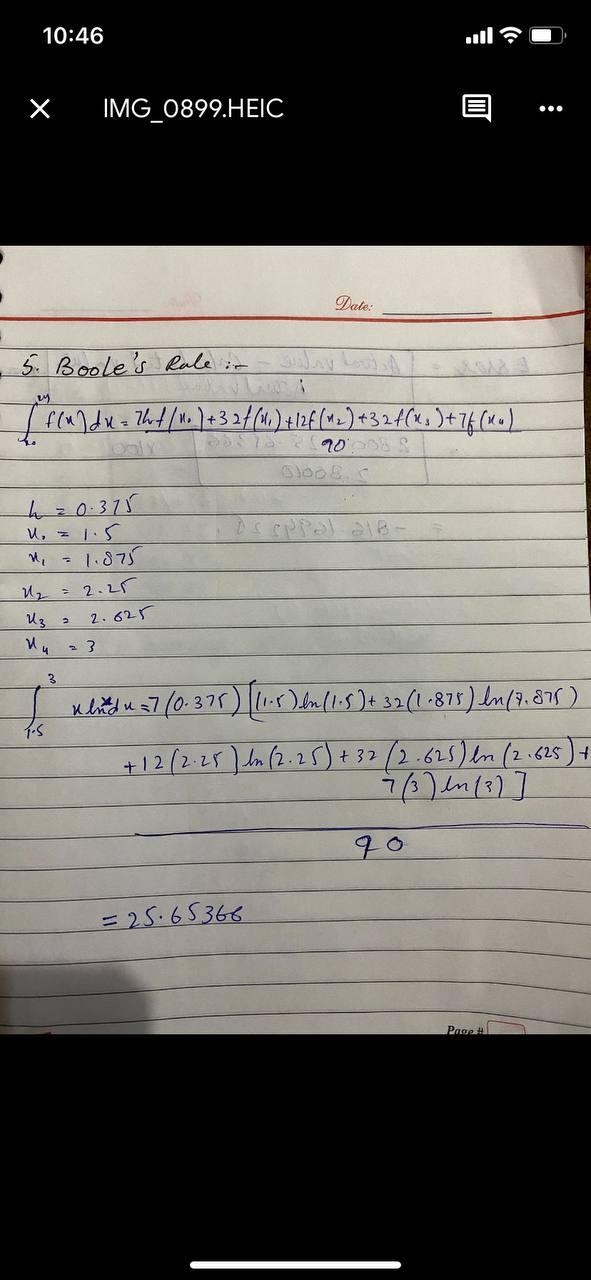 10:46
IMG_0899.HEIC
Date:
5. Boole's Rule :-
∫ f(x)dx = 7hf(x₀)+32f(x₁)+12f(x₂)+32f(x₃)+7f(x₄)
90
h = 0.375
x₀ = 1.5
x₁ = 1.875
x₂ = 2.25
x₃ = 2.625
x₄ = 3
∫ 3 1.5 x lnx dx = 7(0.375) [(1.5)ln(1.5)+ 32(1.875) ln(7.875)
+12(2.25) ln(2.25) + 32(2.625) ln(2.625)+
7(3) ln(3) ]
90
= 25.65366
Page #